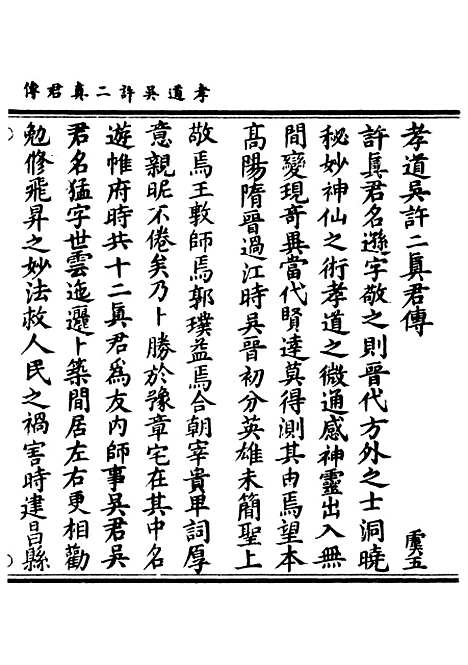 孝道吳許二真君傳
孝道吳許二眞君傳
虞五
許眞君名遜字敬之則晉代方外之士洞曉
秘妙神仙之術孝道之微通感神靈出入無
間變現奇異當代賢達莫得測其由焉望本
高陽隋晉過江時吳晉初分英雄未簡聖上
敬焉王敦師焉郭璞益焉合朝宰貴卑詞厚
意親昵不倦矣乃卜勝於豫章宅在其中名
遊帷府時共十二眞君為友內師事吳君吳
君名猛字世雲迤邐卜築間居左右更相勸
勉修飛昇之妙法救人民之禍害時建昌縣